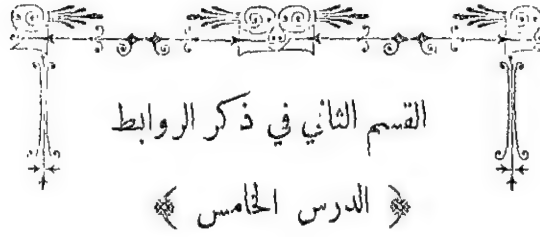 القسم الثاني في ذكر الروابط
﴿ الدرس الخامس ﴾